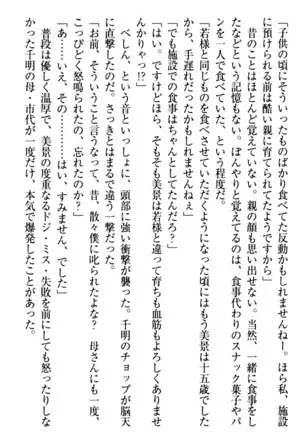 「子供の頃にそういったものばかり食べてた反動かもしれませんねー。ほら私、施設
に預けられる前は酷い親に育てられてましたから」
　昔のことはほとんど覚えていない。親の顔も思い出せない。当然、一緒に食事をし
たなどという記憶もない。ぼんやりと覚えてるのは、食事代わりのスナック菓子やパ
ンを一人で食べていた、という程度だ。
「若様と同じものを食べさせていただくようになった頃にはもう美景は十五歳でした
から、手遅れだったかもしれませんねぇ」
「でも施設での食事はちゃんとしてたんだろ？」
「はい。ですけどほら、そもそも美景は若様と違って育ちも血筋もよろしくありませ
んかりゃっ!?」
　べしん、という音といっしょに、頭部に強い衝撃が襲った。千明のチョップが脳天
に直撃したのだ。さっきとはまるで違う一撃だった。
「お前、そういうこと言うなって、昔、散々僕に叱られたよな？　母さんにも一度、
こっぴどく怒鳴られたの、忘れたのか？」
「あ……いえ、その………はい、すみません、でした」
　普段は優しく温厚で、美景の度重なるドジ・ミス・失敗を前にしても怒ったりしな
かった千明の母・市代が一度だけ、本気で爆発したことがあった。